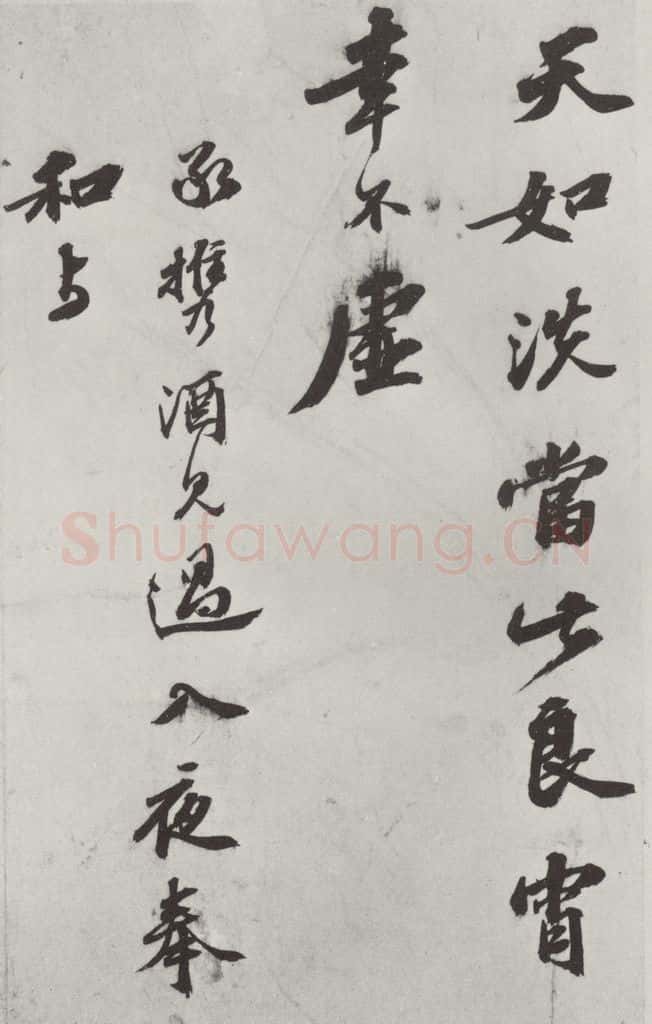 天如淡當此良宵
幸不虛
承攜酒見過入夜奉
和
Shufawang.CN